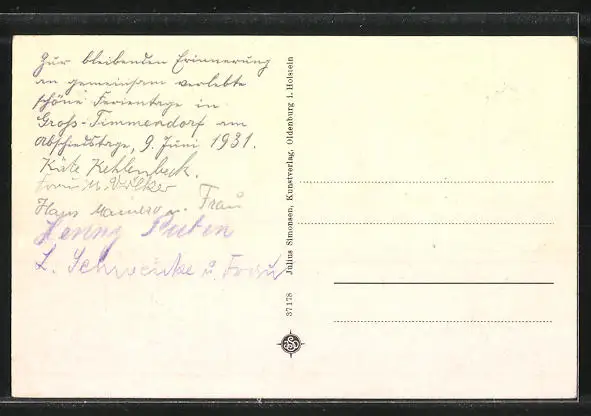 Zur bleibenden Erinnerung
an gemeinsam verlebte
schöne Ferientage in
Gross-Timmendorf am
Abschiedstage, 9. Juni 1931.
Käte Kehlenbeck.
Frau M. Völker
Hans u. Frau
Henny
L. Schwenke u. Frau
37178 Julius Simonsen, Kunstverlag, Oldenburg i. Holstein